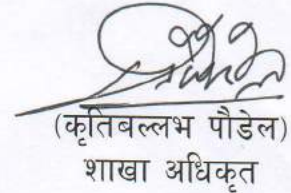 (कृतिबल्लभ पौडेल)
शाखा अधिकृत